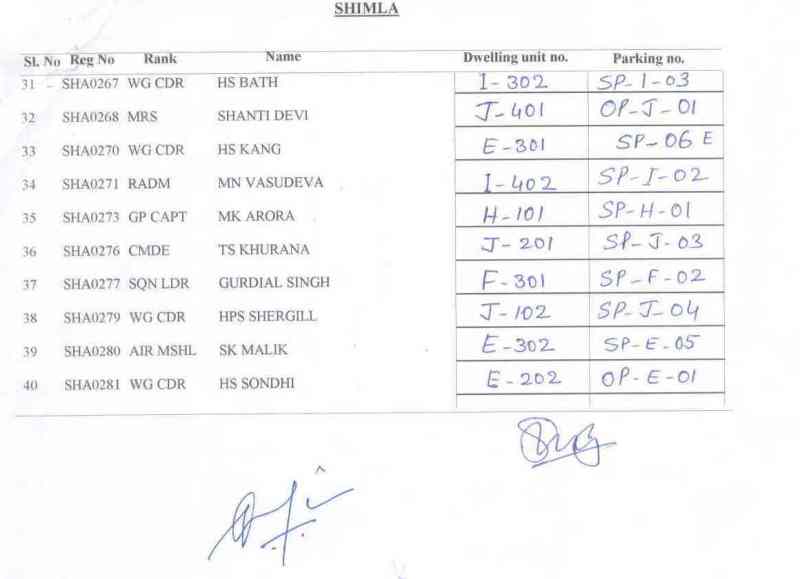 SHIMLA
Sl. No Reg No Rank Name Dwelling unit no. Parking no.
31 SHA0267 WG CDR HS BATH I-302 SP-1-03
32 SHA0268 MRS SHANTI DEVI J-401 OP-J-01
33 SHA0270 WG CDR HS KANG E-301 SP-06 E
34 SHA0271 RADM MN VASUDEVA I-402 SP-I-02
35 SHA0273 GP CAPT MK ARORA H-101 SP-H-01
36 SHA0276 CMDE TS KHURANA J-201 SP-J-03
37 SHA0277 SQN LDR GURDIAL SINGH F-301 SP-F-02
38 SHA0279 WG CDR HPS SHERGILL J-102 SP-J-04
39 SHA0280 AIR MSHL SK MALIK E-302 SP-E-05
40 SHA0281 WG CDR HS SONDHI E-202 OP-E-01